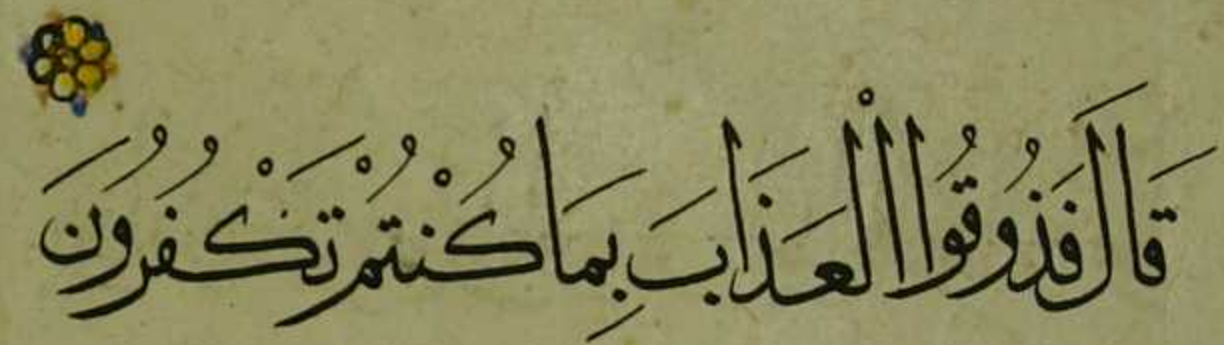 قَالَ فَذُوقُوا الْعَذَابَ بِمَا كُنْتُمْ تَكْفُرُونَ